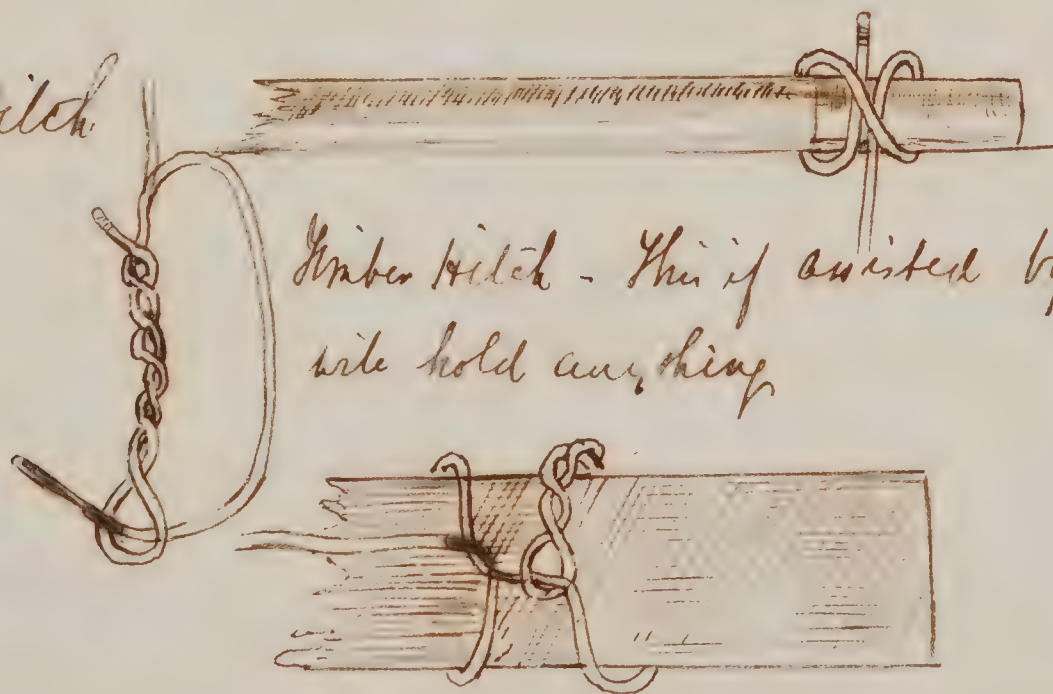 Hitch
Timber Hitch - This if assisted by
will hold anything